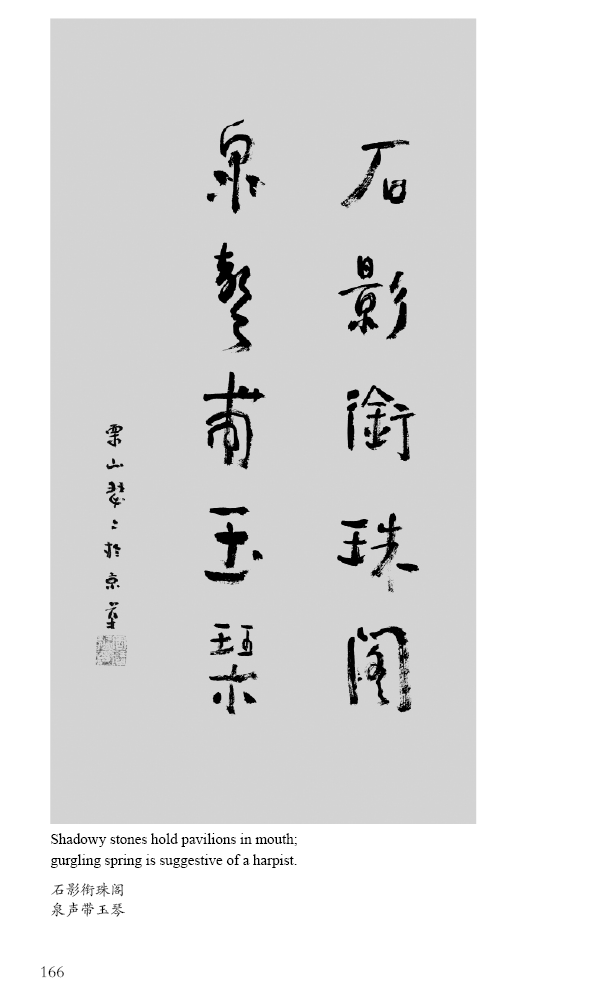 石影銜珠閣
泉聲帶玉琴
栗山 於京華
Shadowy stones hold pavilions in mouth;
gurgling spring is suggestive of a harpist.
石影衔珠阁
泉声带玉琴
166